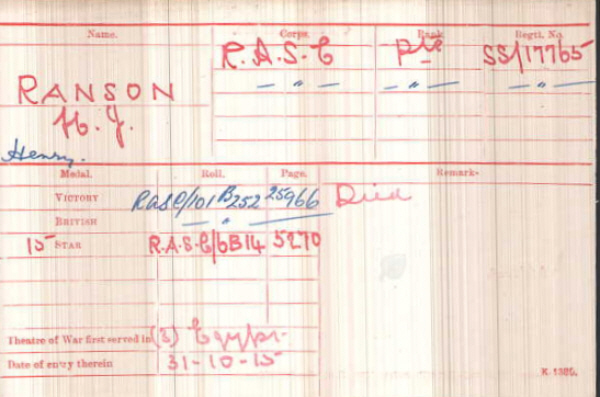 Name. Corps. Rank Regtl. No.
R.A.S.C Pte SS/17765
— " — — " — — " —
RANSON
H.J.
Henry.
Medal. Roll. Page. Remarks
VICTORY RASC/101 B252 25966 Died
BRITISH — " —
15 STAR R.A.S.C/6B14 5270
Theatre of War first served in (3) Egypt
Date of entry therein 31-10-15
K 1380.